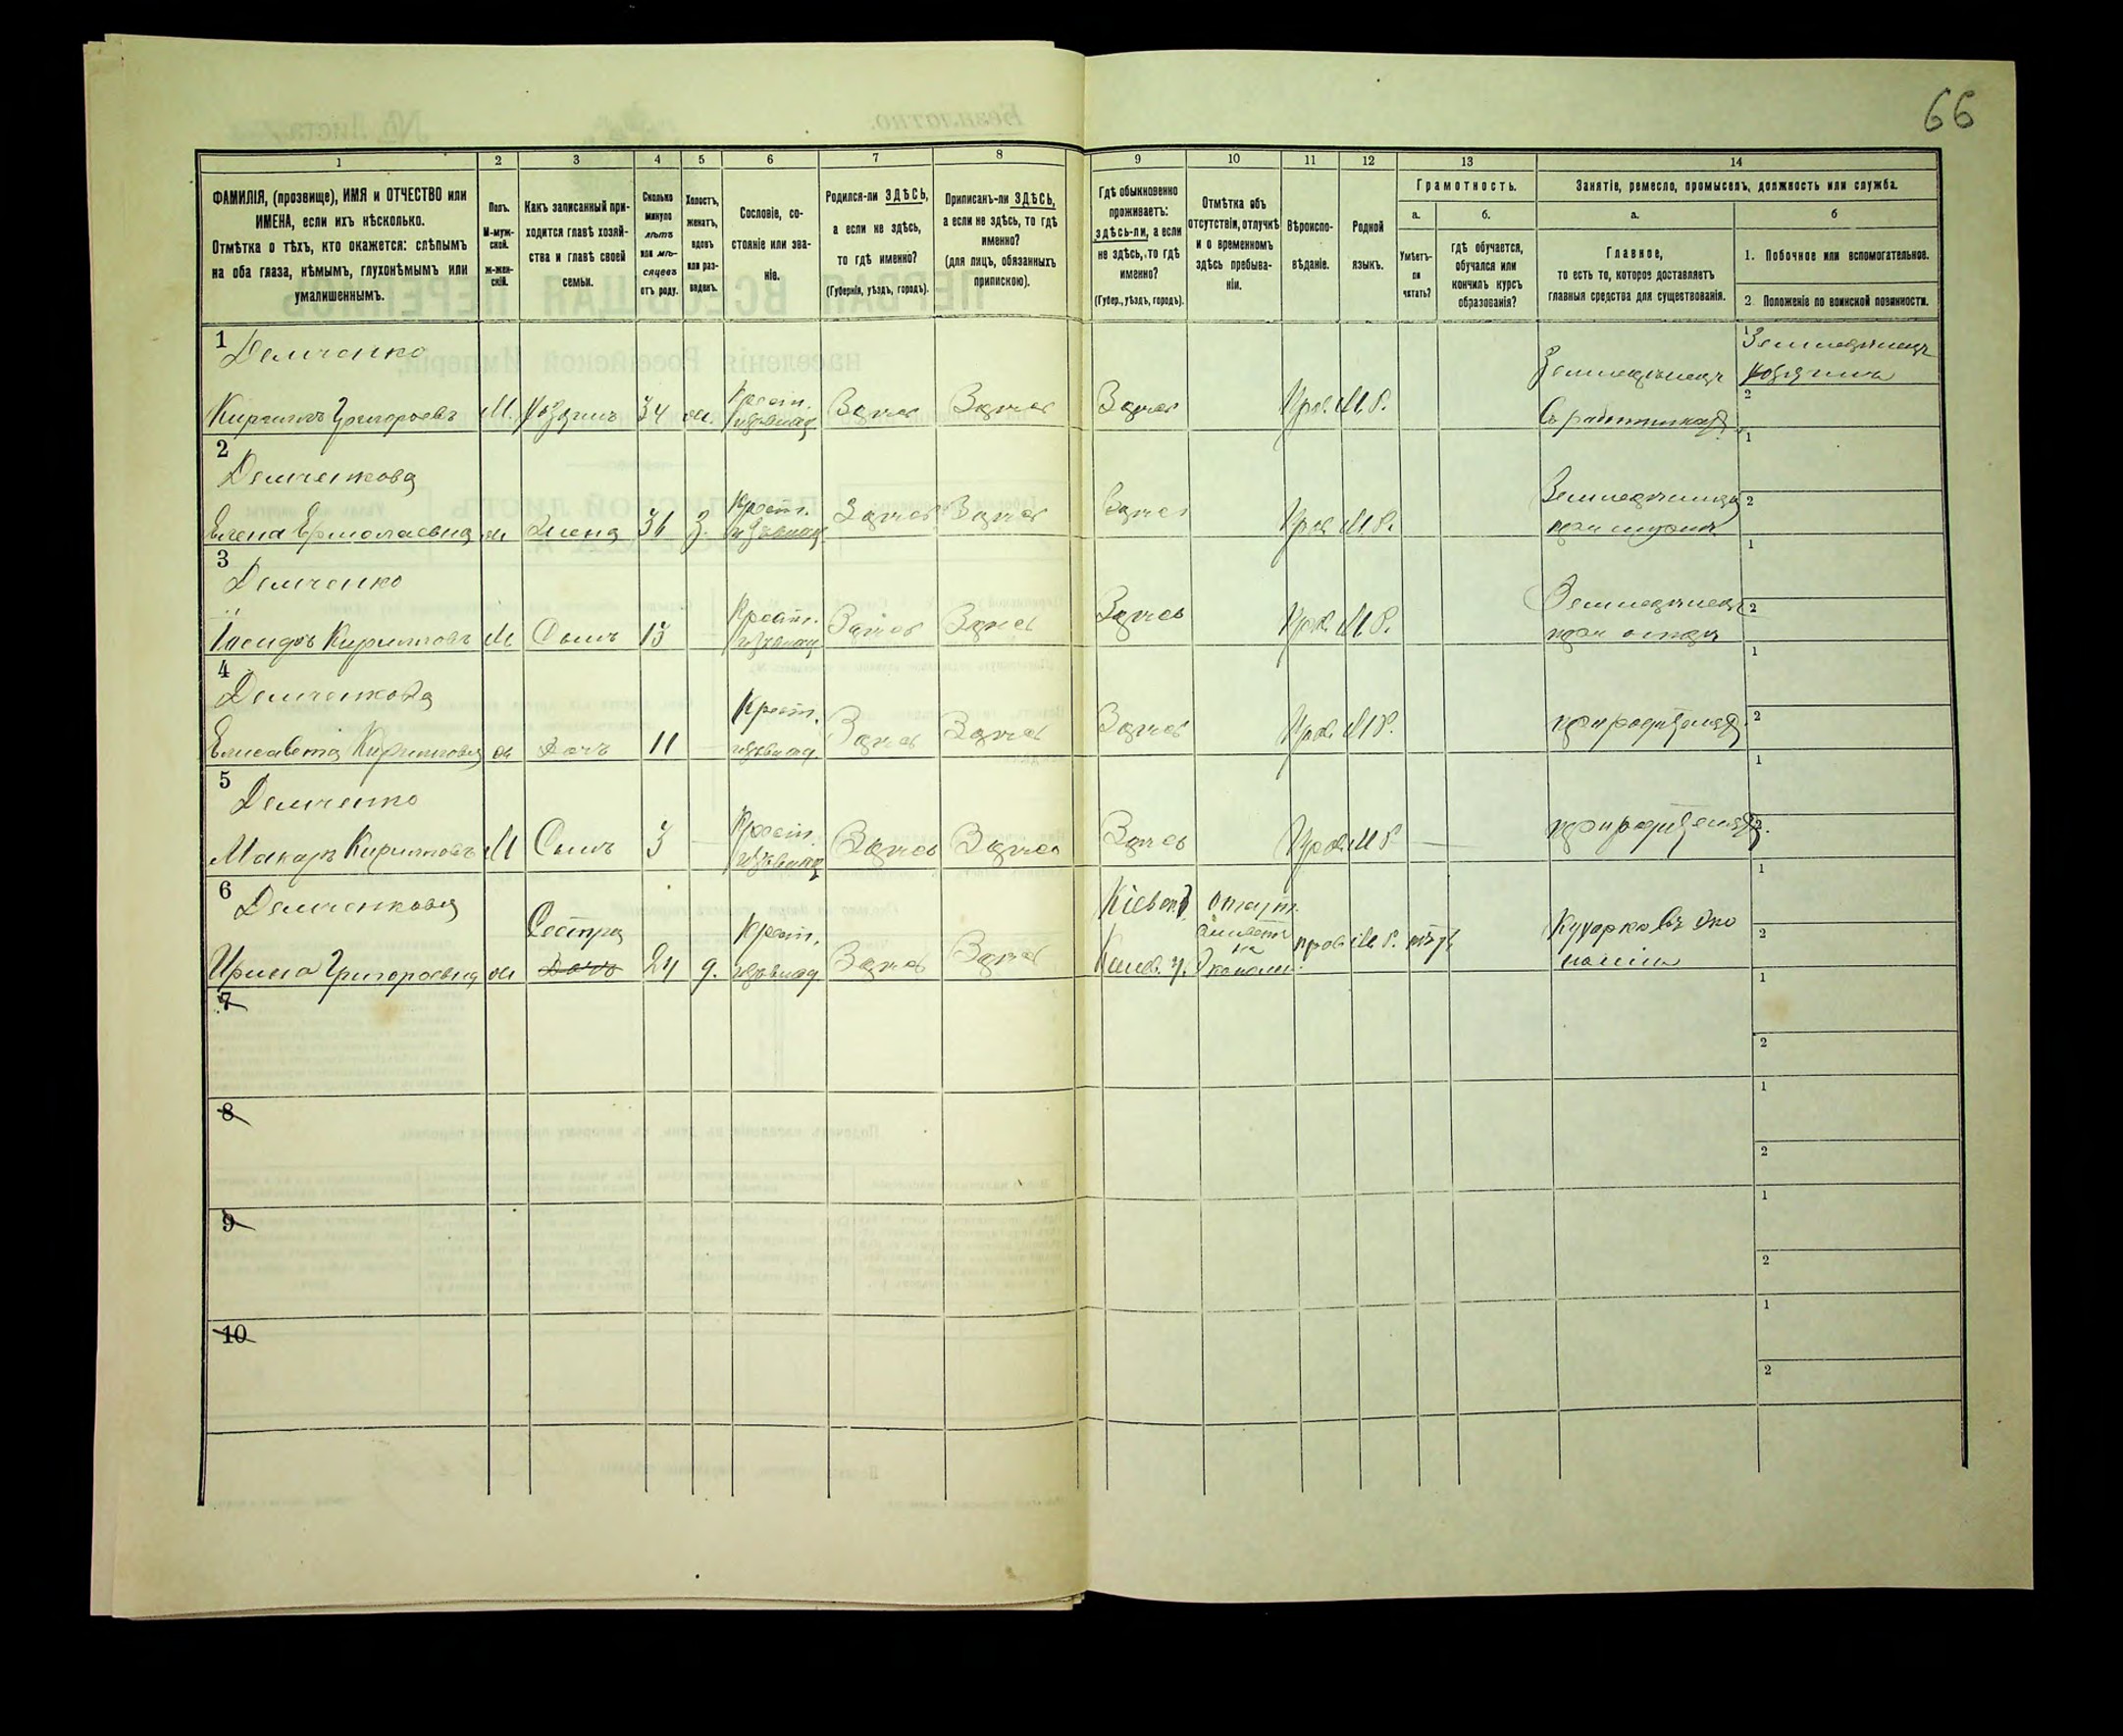 66
1 2 3 4 5 6 7 8 9 10 11 12 13 14
ФАМИЛІЯ, (прозвище), ИМЯ и ОТЧЕСТВО или
ИМЕНА, если ихъ нѣсколько.
Отмѣтка о тѣхъ, кто окажется: слѣпымъ
на оба глаза, нѣмымъ, глухонѣмымъ или
умалишеннымъ.
Полъ.
М-муж-
ской.
ж-жен-
скій.
Какъ записанный при-
ходится главѣ хозяй-
ства и главѣ своей
семьи.
Сколько
минуло
лѣтъ
или мѣ-
сяцевъ
отъ роду.
Холостъ,
женатъ,
вдовъ
или раз-
веденъ.
Сословіе, со-
стояніе или зва-
ніе.
Родился-ли ЗДѢСЬ,
а если не здѣсь,
то гдѣ именно?
(Губернія, уѣздъ, городъ).
Приписанъ-ли ЗДѢСЬ,
а если не здѣсь, то гдѣ
именно?
(для лицъ, обязанныхъ
припискою).
Гдѣ обыкновенно
проживаетъ:
здѣсь-ли, а если
не здѣсь, то гдѣ
именно?
(Губер., уѣздъ, городъ).
Отмѣтка объ
отсутствіи, отлучкѣ
и о временномъ
здѣсь пребыва-
ніи.
Вѣроиспо-
вѣданіе.
Родной
языкъ.
Грамотность.
а. б.
Умѣетъ-
ли
читать?
гдѣ обучается,
обучался или
кончилъ курсъ
образованія?
Занятіе, ремесло, промыселъ, должность или служба.
а. б
Главное,
то есть то, которое доставляетъ
главныя средства для существованія.
1. Побочное или вспомогательное.
2 Положеніе по воинской повинности.
1 Демченко
Кириллъ Григорьевъ М. Хозяинъ 34 ж. Крест. Здѣсь Здѣсь Здѣсь Прав. М.Р. Земледѣлецъ
Съ работникам
1 Земледѣлецъ
хозяинъ
2
2 Демченкова
Елена Ермолаевна ж Жена 36 З. Крест. Здѣсь Здѣсь Здѣсь Прав. М.Р.
при мужѣ
1
2
3 Демченко
Кириловъ М Сынъ 15 Крест. Здѣсь Здѣсь Здѣсь Прав. М.Р. Земледѣлецъ
при отцѣ
1
2
4 Демченкова
Елисавета Кирилловна ж Дочь 11 Крест. Здѣсь Здѣсь Здѣсь Прав. М.Р. при родителяхъ
1
2
5 Демченко
Макаръ Кириловъ М Сынъ 3 Крест. Здѣсь Здѣсь Здѣсь Прав. М.Р. при родителяхъ
1
2
6 Демченкова
Сестра
Ирина Григорьевна ж Дочь 24 д. Крест. Здѣсь Здѣсь Кіевск. Канев. у. прав. М.Р. Кухарка въ эко
номіи
1
2
7
1
2
8
1
2
9
1
2
10
1
2